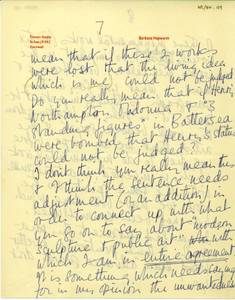 7
Trewyn Studio
St Ives
Cornwall
Barbara Hepworth
mean that if these 2 works
were lost that the living idea
which is me could not be judged
Do you really mean that if Henry's
Northampton Madonna & "3
standing figures" in Battersea
were bombed that Henry's stature
could not be judged?
I don't think you really mean this
& I think the sentence needs
adjustment (or an addition) in
order to connect up with what
you go on to say about "modern
sculpture & public art" with
which I am in entire agreement.
It is something which needs saying
for in my opinion the unwanted